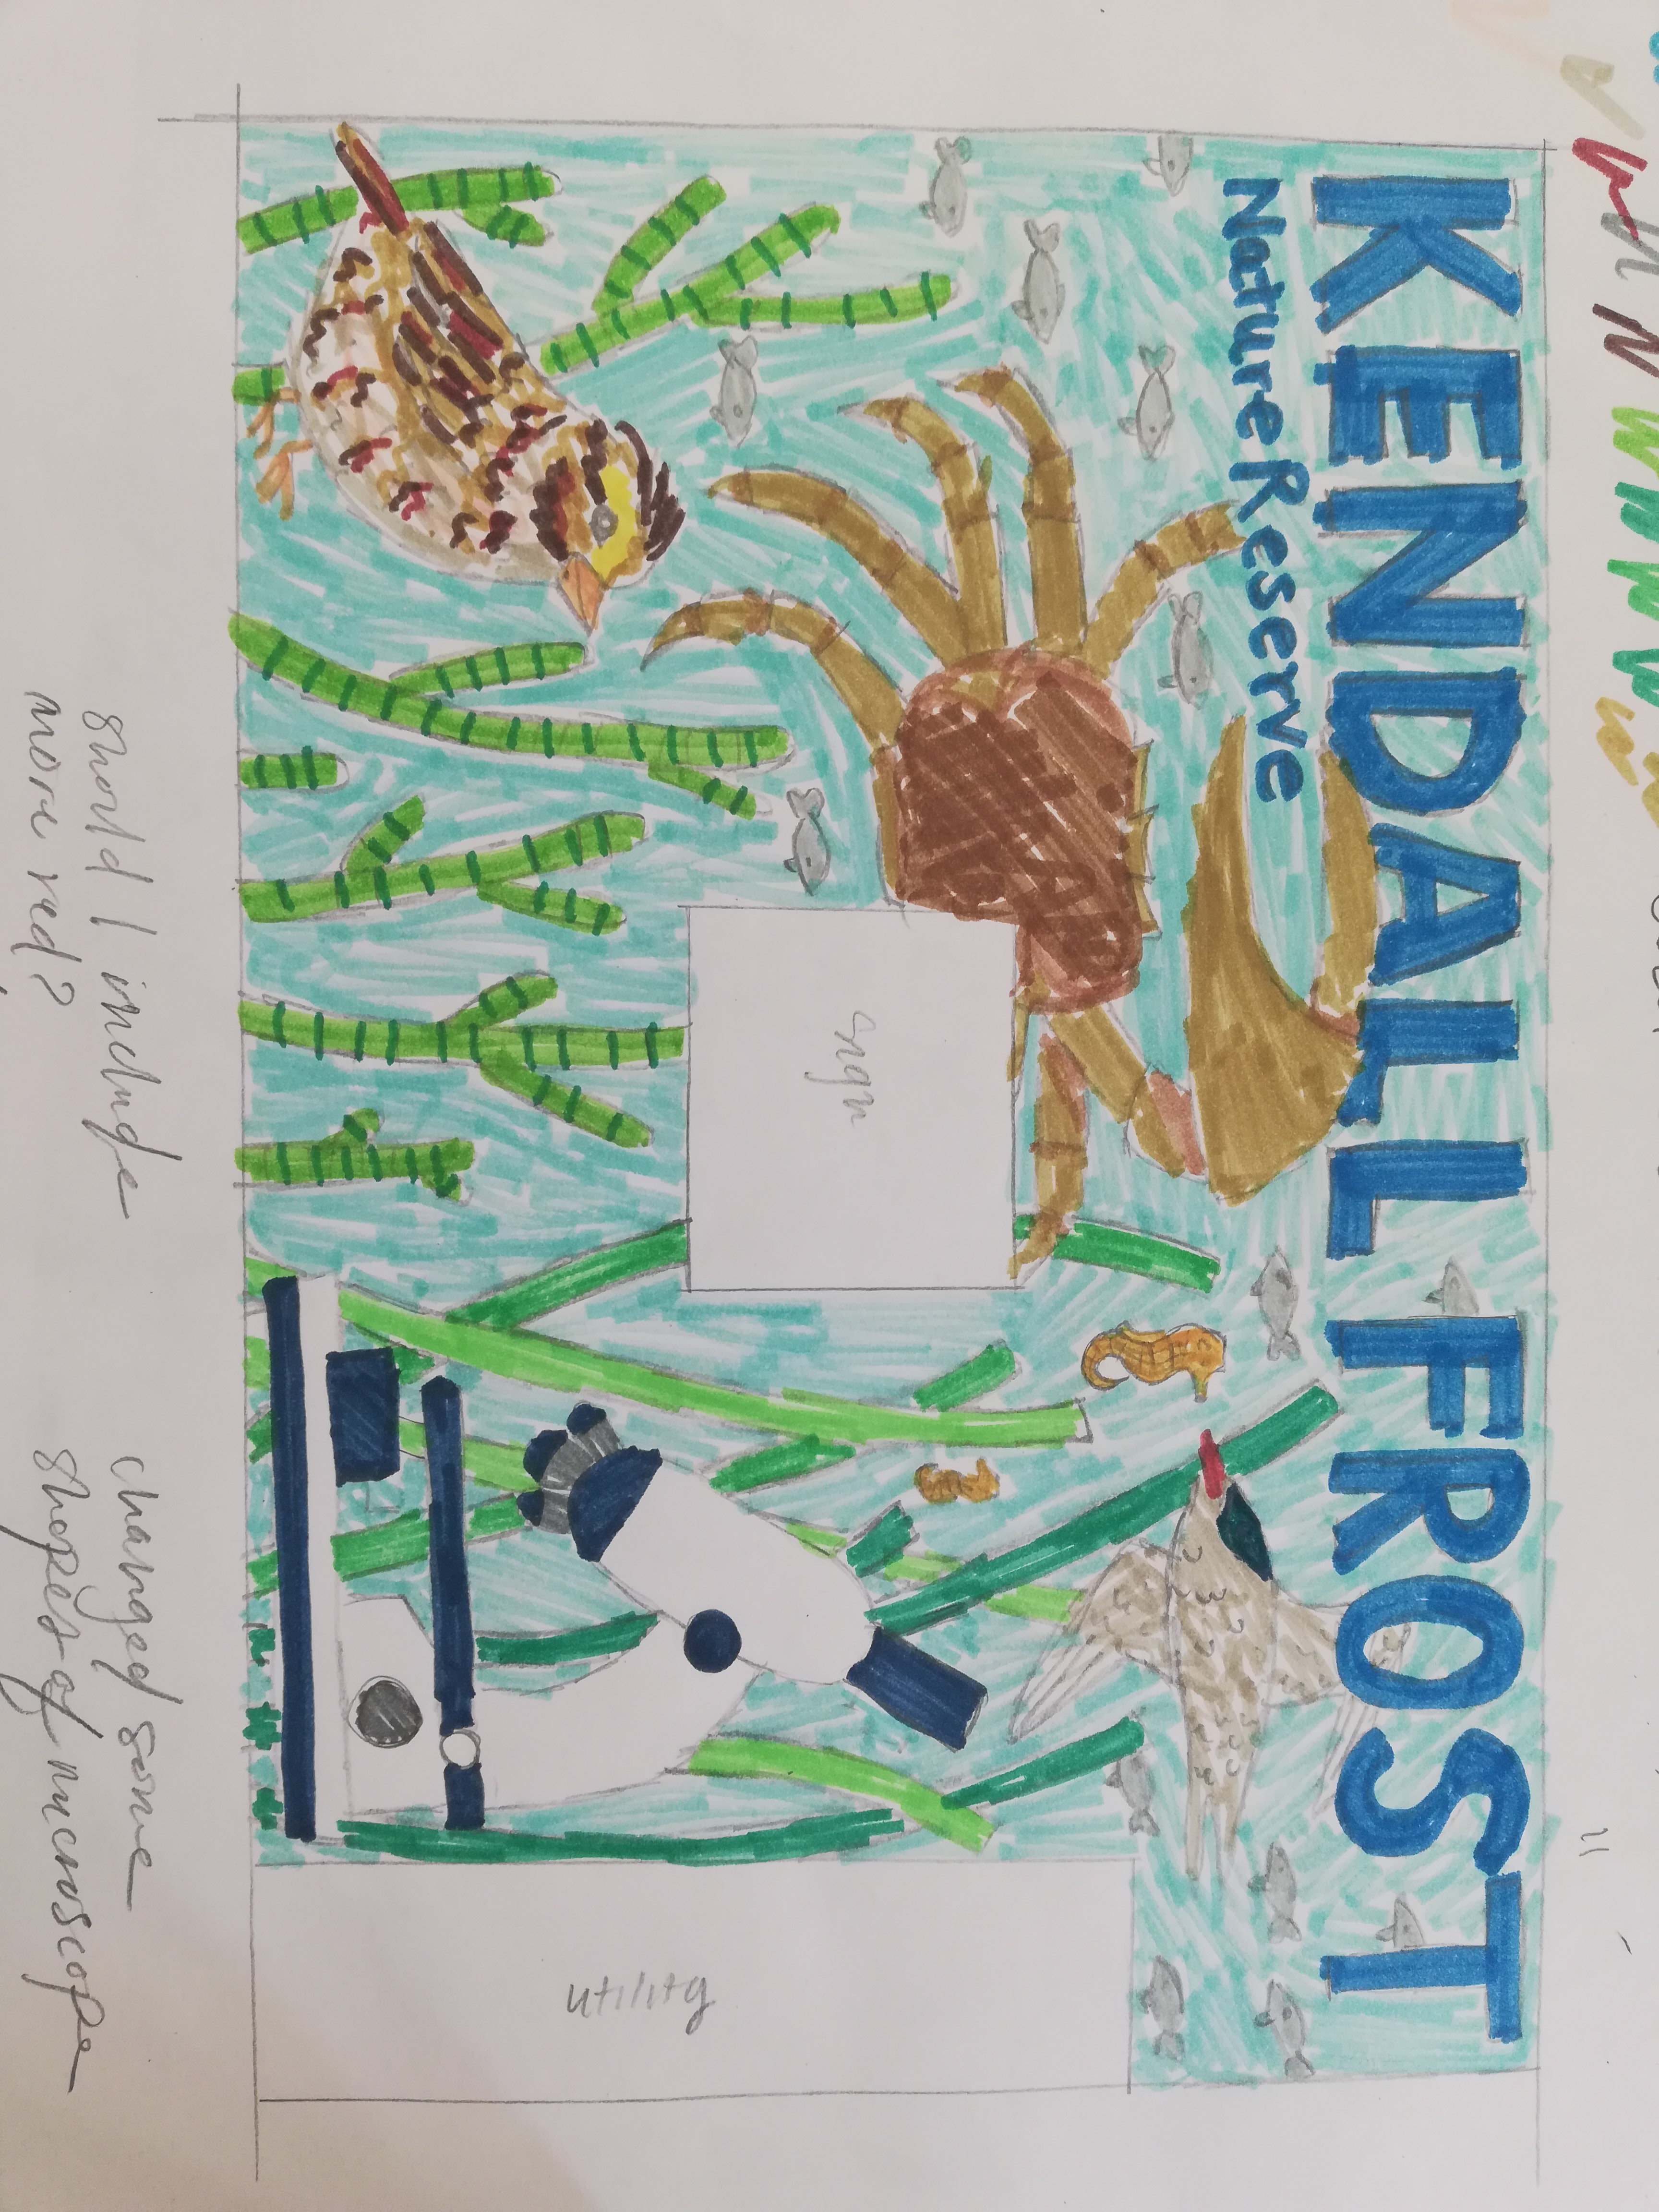 KENDALL FROST
Nature Reserve
sign
utility
should I include
more red?
changed some
shapes of microscope